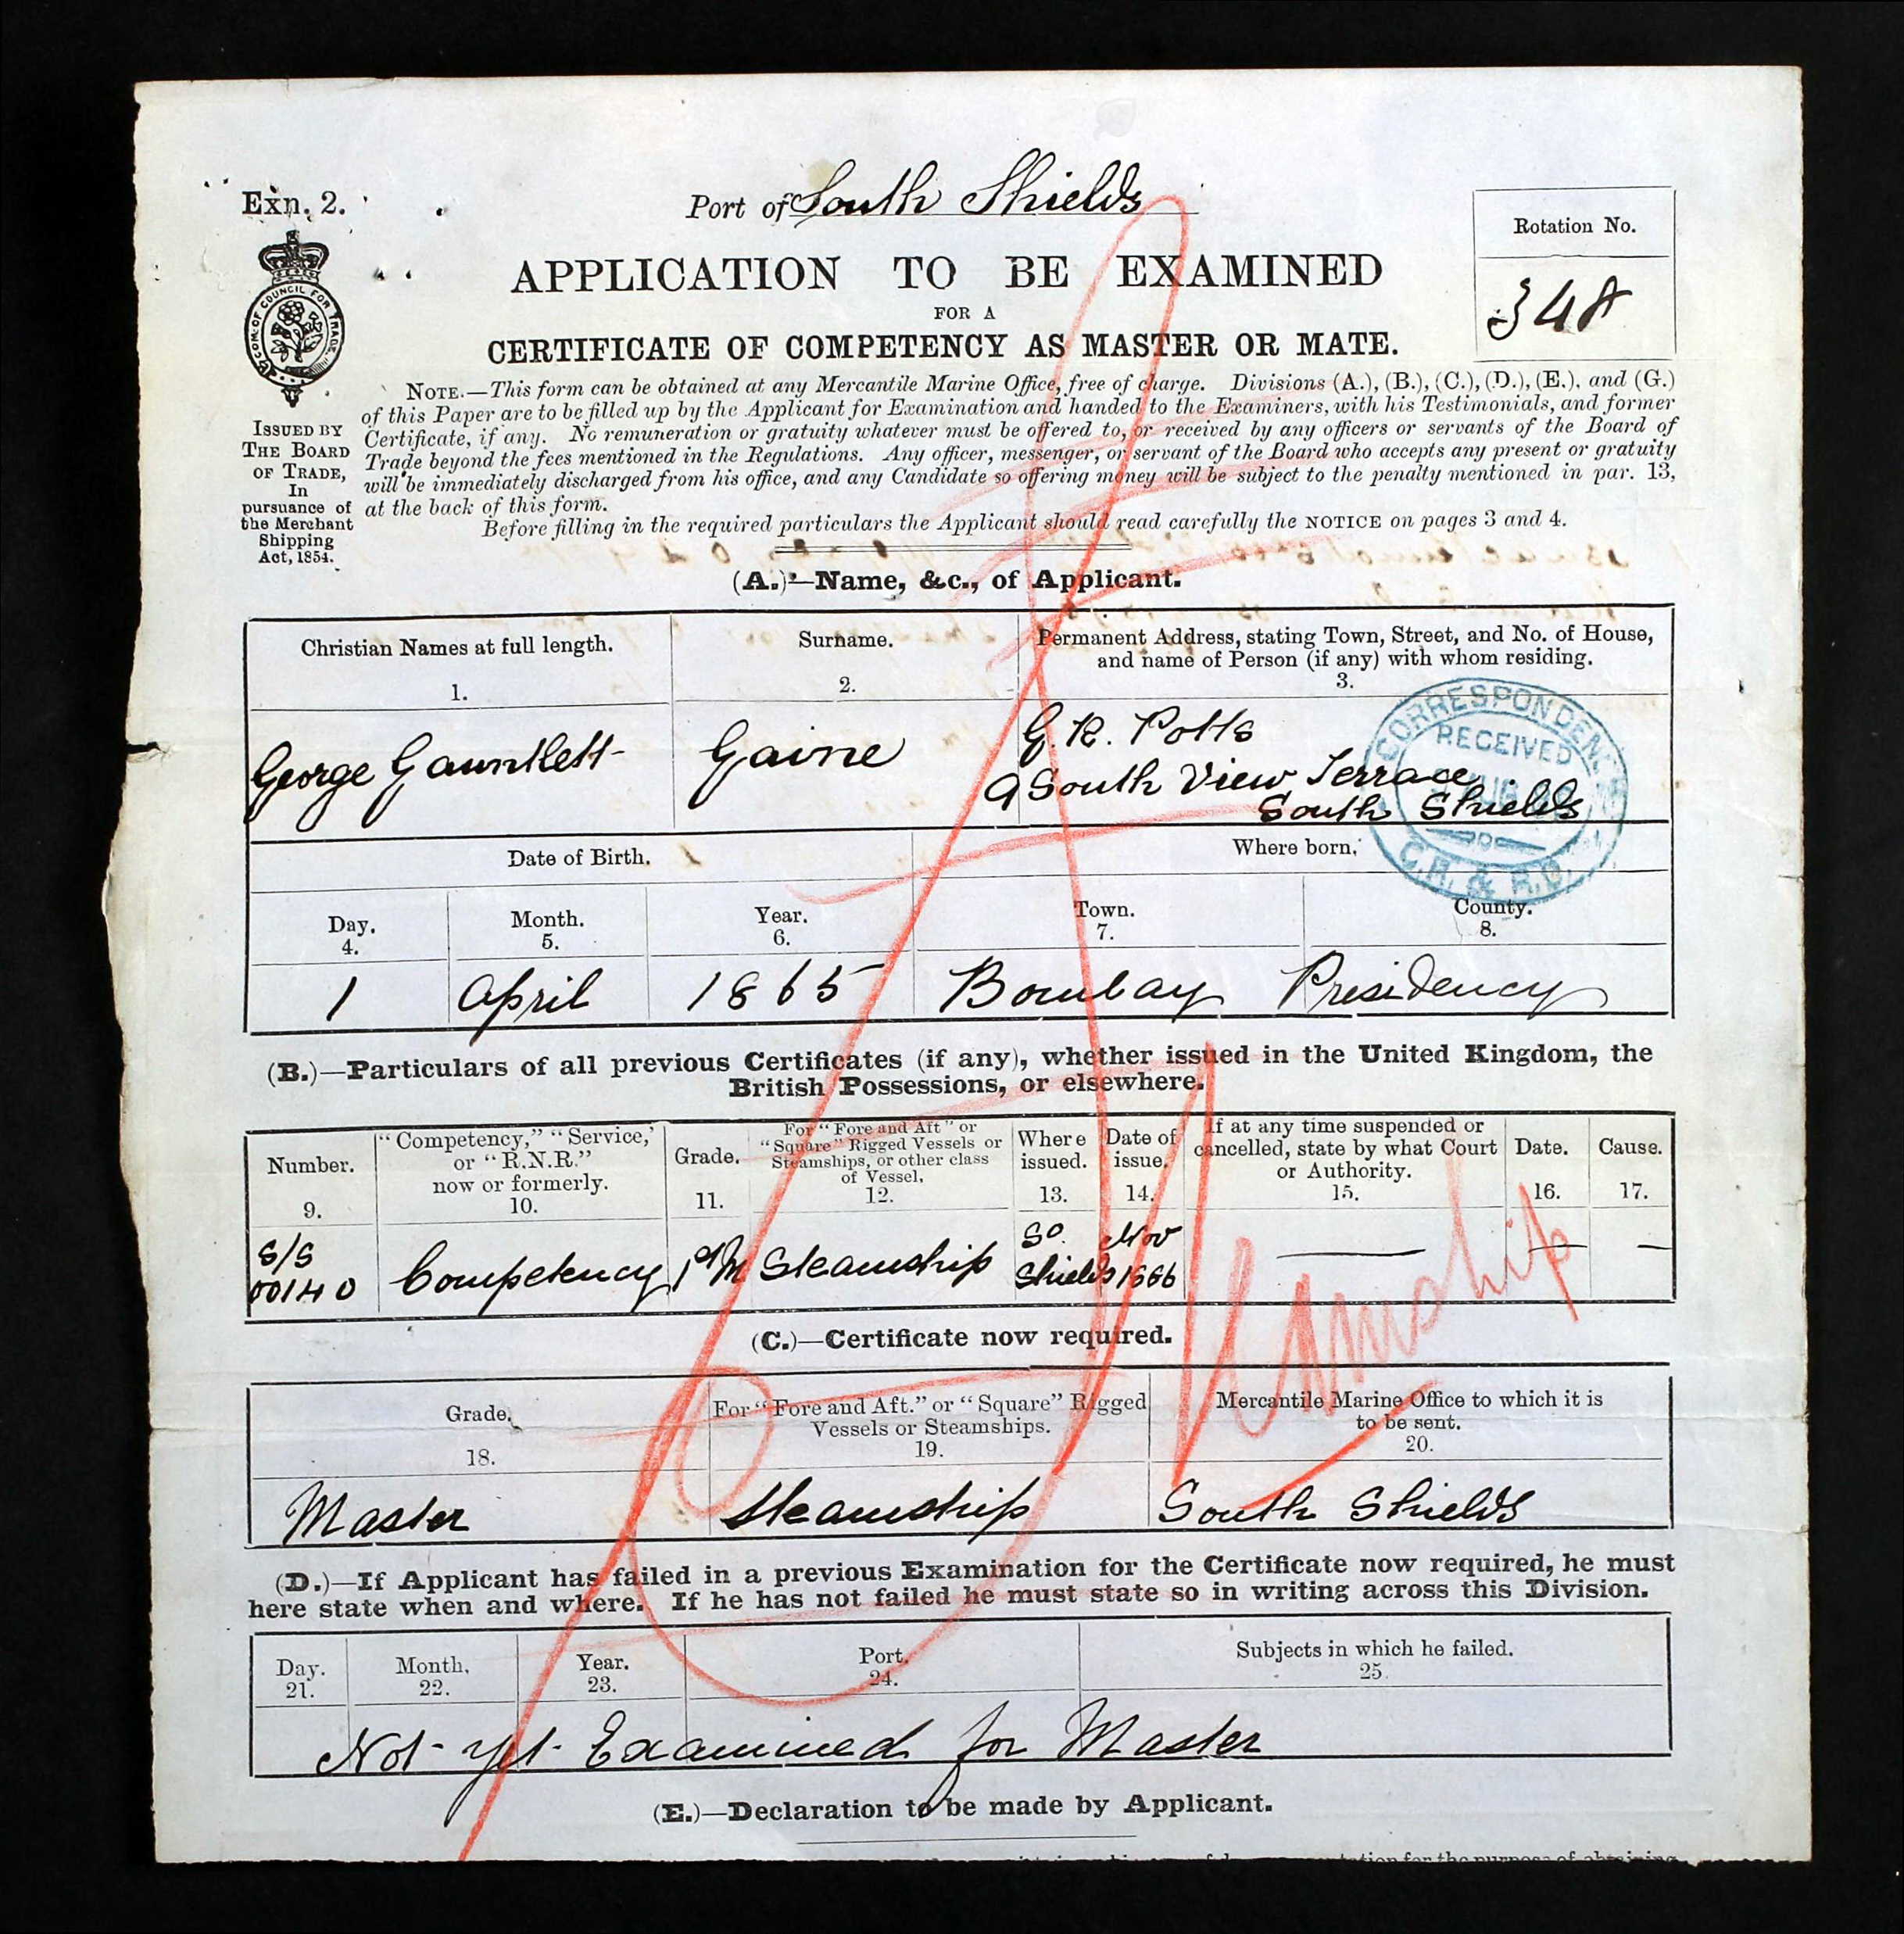 Exn. 2.
Port of South Shields
Rotation No.
348
APPLICATION TO BE EXAMINED
FOR A
CERTIFICATE OF COMPETENCY AS MASTER OR MATE.
ISSUED BY
THE BOARD
OF TRADE,
In
pursuance of
the Merchant
Shipping
Act, 1854.
NOTE.—This form can be obtained at any Mercantile Marine Office, free of charge. Divisions (A.), (B.), (C.), (D.), (E.), and (G.)
of this Paper are to be filled up by the Applicant for Examination and handed to the Examiners, with his Testimonials, and former
Certificate, if any. No remuneration or gratuity whatever must be offered to, or received by any officers or servants of the Board of
Trade beyond the fees mentioned in the Regulations. Any officer, messenger, or servant of the Board who accepts any present or gratuity
will be immediately discharged from his office, and any Candidate so offering money will be subject to the penalty mentioned in par. 13,
at the back of this form.
Before filling in the required particulars the Applicant should read carefully the NOTICE on pages 3 and 4.
(A.)—Name, &c., of Applicant.
Christian Names at full length.
1.
Surname.
2.
Permanent Address, stating Town, Street, and No. of House,
and name of Person (if any) with whom residing.
3.
George Gauntlett
Gaine
G. R. Potts
9 South View Terrace
South Shields
CORRESPONDENCE
RECEIVED
AUG
C.R. & R.O.
Date of Birth.
Where born.
Day.
4.
Month.
5.
Year.
6.
Town.
7.
County.
8.
1
April
1865
Bombay
Presidency
(B.)—Particulars of all previous Certificates (if any), whether issued in the United Kingdom, the
British Possessions, or elsewhere.
Number.
9.
"Competency," "Service,"
or "R.N.R."
now or formerly.
10.
Grade.
11.
For "Fore and Aft" or
"Square" Rigged Vessels or
Steamships, or other class
of Vessel.
12.
Where
issued.
13.
Date of
issue.
14.
If at any time suspended or
cancelled, state by what Court
or Authority.
15.
Date.
16.
Cause.
17.
S/S
00140
Competency
1st M
Steamship
So.
Shields
Nov
1886
—
—
—
Steamship
(C.)—Certificate now required.
Grade.
18.
For "Fore and Aft." or "Square" Rigged
Vessels or Steamships.
19.
Mercantile Marine Office to which it is
to be sent.
20.
Master
Steamship
South Shields
(D.)—If Applicant has failed in a previous Examination for the Certificate now required, he must
here state when and where. If he has not failed he must state so in writing across this Division.
Day.
21.
Month.
22.
Year.
23.
Port.
24.
Subjects in which he failed.
25.
Not yet Examined for Master
(E.)—Declaration to be made by Applicant.